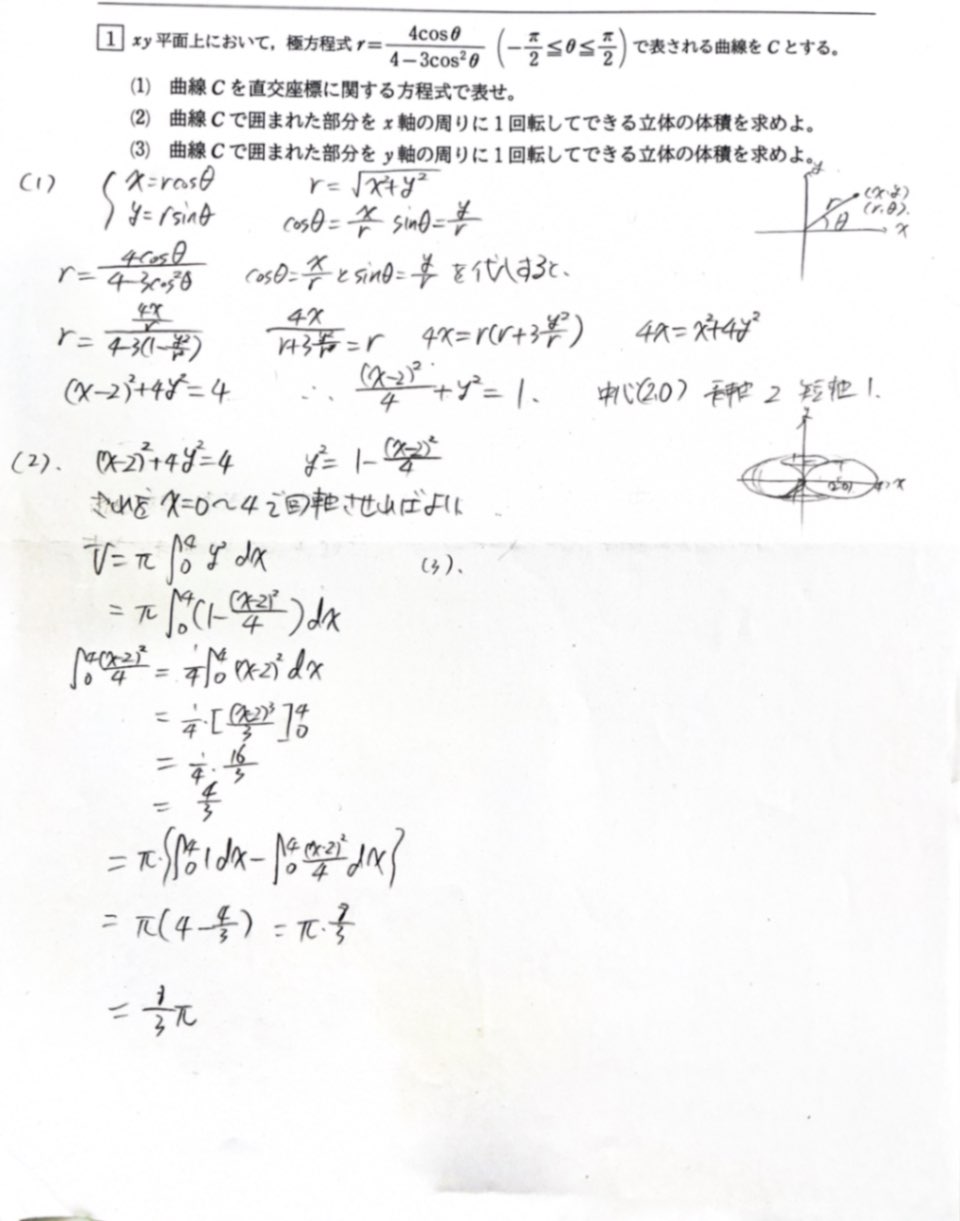 1 xy平面上において，極方程式 r=4cosθ/(4−3cos²θ) (−π/2≦θ≦π/2) で表される曲線をCとする。
(1) 曲線Cを直交座標に関する方程式で表せ。
(2) 曲線Cで囲まれた部分をx軸の周りに1回転してできる立体の体積を求めよ。
(3) 曲線Cで囲まれた部分をy軸の周りに1回転してできる立体の体積を求めよ。
(1) { x=rcosθ r=√(x²+y²)
y=rsinθ cosθ=x/r sinθ=y/r
y r (x,y) (r,θ) θ x
r=4cosθ/(4-3cos²θ) cosθ=x/r と sinθ=y/r を代入すると、
r=(4x/r)/(4-3(1-y²/r²)) 4x/(r+3y²/r)=r 4x=r(r+3y²/r) 4x=x²+4y²
(x-2)²+4y²=4 ∴ (x-2)²/4+y²=1. 中心(2,0) 長軸 2 短軸 1.
(2). (x-2)²+4y²=4 y²=1-(x-2)²/4
y (2,0) 4 x
これを x=0〜4で回転させればよい
V=π∫₀⁴ y² dx (3).
=π∫₀⁴(1-(x-2)²/4)dx
∫₀⁴(x-2)²/4 = 1/4∫₀⁴(x-2)²dx
=1/4・[(x-2)³/3]₀⁴
=1/4・16/3
=4/3
=π・{∫₀⁴1dx-∫₀⁴(x-2)²/4 dx}
=π(4-4/3)=π・8/3
=8/3π